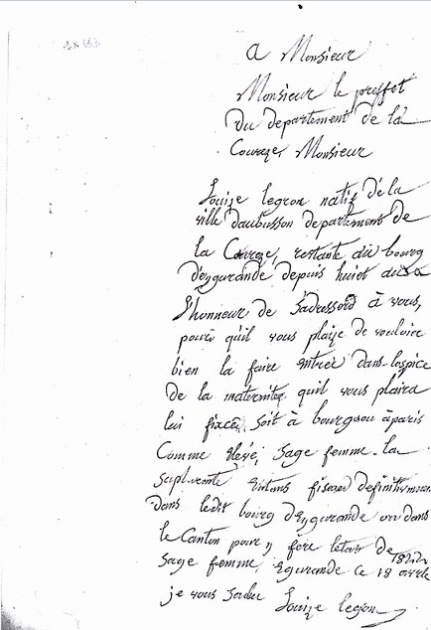 a Monsieur
Monsieur le preffet
Du departement de la
Coureze, Monsieur
Louize legron natif de la
ville daubusson departement de
la Coureze, restante au bourg
d'eygurande depuis huiet
l'honneur de Sadresser à vous,
pour quil vous plaize de vouloire
bien la faire entree dans lospice
de la maternitee quil vous plaira
lui fixce, soit à bourg ou à paris
Comme elevé, sage femme. la
supliante fixser definitivement
Dans ledit bourg deygurande ou dans
le Canton pour y fere letat de
sage femme, Egurande ce 18 avrile
je vous salue Louize legron